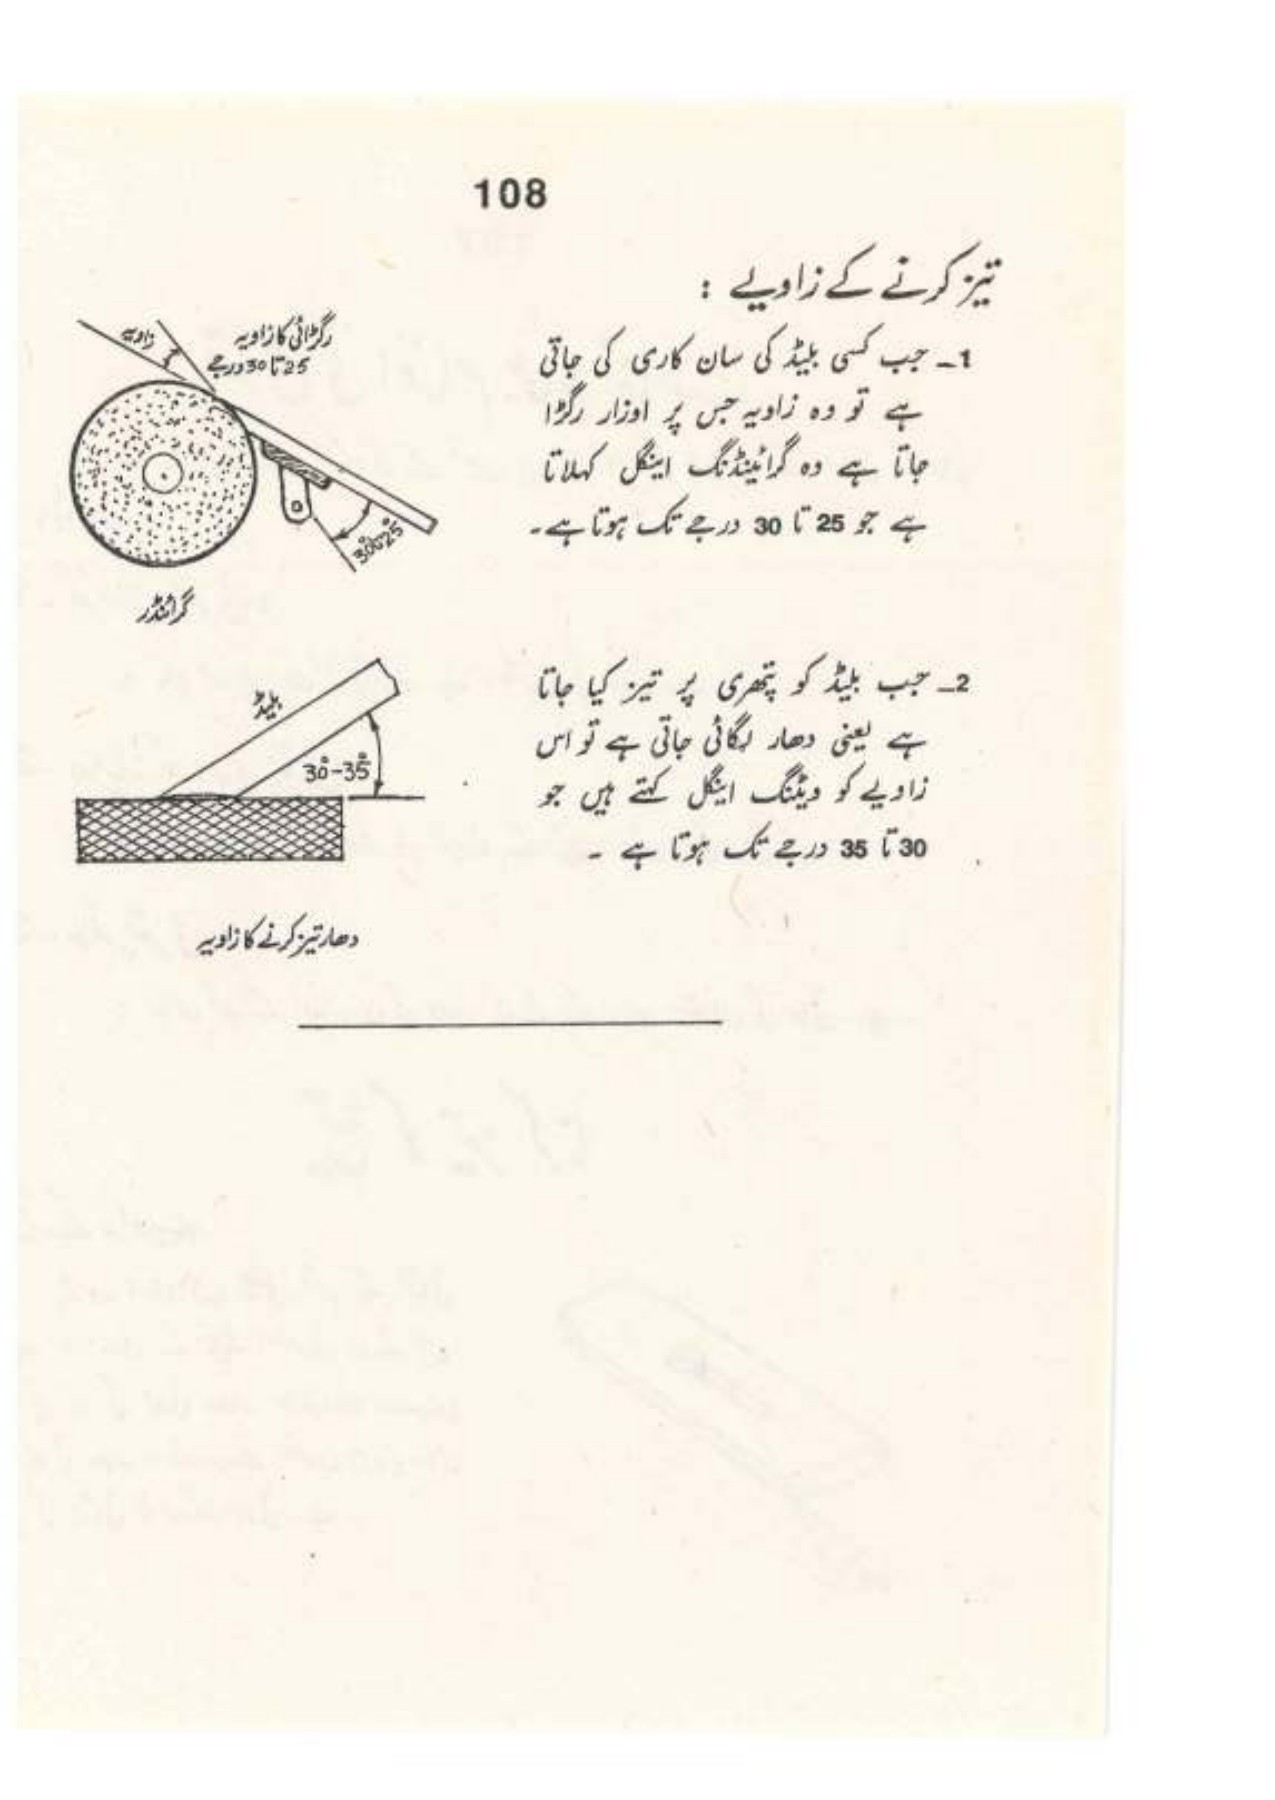 108
تیز کرنے کے زاویے :
1۔ جب کسی بلیڈ کی سان کاری کی جاتی
ہے تو وہ زاویہ جس پر اوزار رگڑا
جاتا ہے وہ گرائینڈنگ اینگل کہلاتا
ہے جو 25 تا 30 درجے تک ہوتا ہے۔
رگڑائی کا زاویہ
25 تا 30 درجے
زاویہ
30° تا 25°
گرائنڈر
2۔ جب بلیڈ کو پتھری پر تیز کیا جاتا
ہے یعنی دھار لگائی جاتی ہے تو اس
زاویے کو ویٹنگ اینگل کہتے ہیں جو
30 تا 35 درجے تک ہوتا ہے ۔
بلیڈ
30°-35°
دھار تیز کرنے کا زاویہ